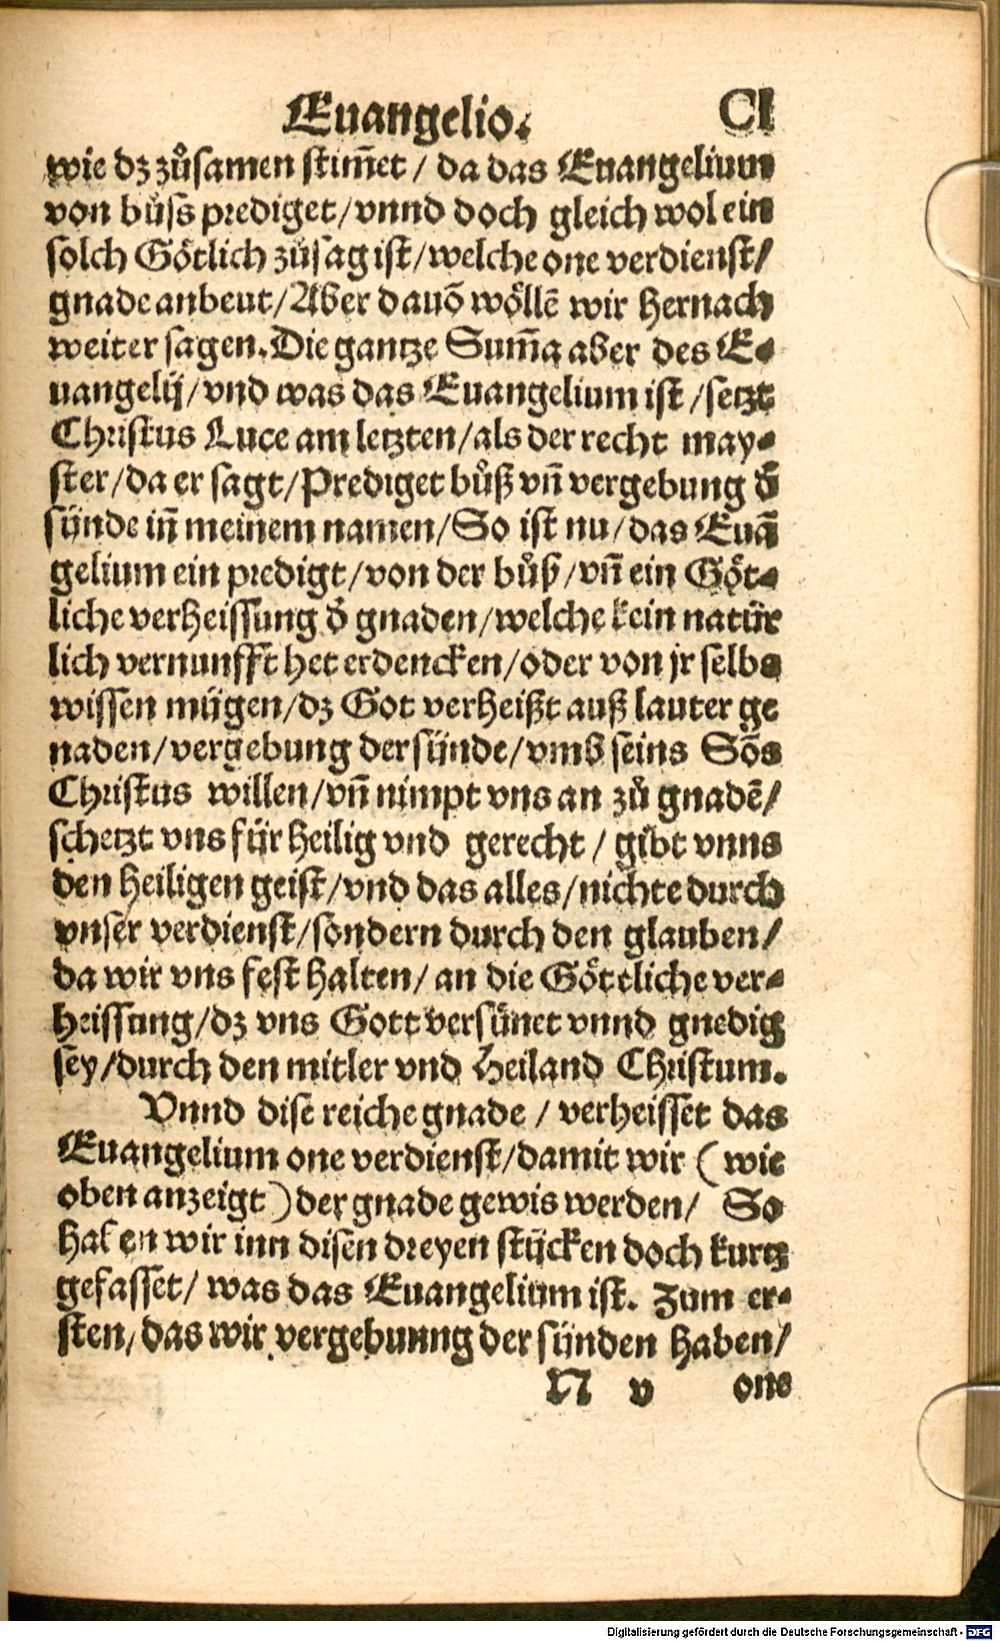 Euangelio. CI
wie dz zůsamen stim̄et / da das Euangelium
von bůss prediget / vnnd doch gleich wol ein
solch Götlich zůsag ist / welche one verdienst /
gnade anbeut / Aber dauō wöllē wir hernach
weiter sagen. Die gantze Sum̄a aber des E-
uangelij / vnd was das Euangelium ist / setzt
Christus Luce am letzten / als der recht may-
ster / da er sagt / Prediget bůß vn̄ vergebung d̄
sünde in̄ meinem namen / So ist nu / das Euā
gelium ein predigt / von der bůß / vn̄ ein Göt-
liche verheissung d̄ gnaden / welche kein natür
lich vernunfft het erdencken / oder von jr selbs
wissen mügen / dz Got verheißt auß lauter ge
naden / vergebung der sünde / vmb seins Sōs
Christus willen / vn̄ nimpt vns an zů gnadē /
schetzt vns für heilig vnd gerecht / gibt vnns
den heiligen geist / vnd das alles / nichte durch
vnser verdienst / sondern durch den glauben /
da wir vns fest halten / an die Göttliche ver-
heissung / dz vns Gott versünet vnnd gnedig
sey / durch den mitler vnd Heiland Christum.
Vnnd dise reiche gnade / verheisset das
Euangelium one verdienst / damit wir ( wie
oben anzeigt ) der gnade gewis werden / So
haben wir inn disen dreyen stücken doch kurtz
gefasset / was das Euangelium ist. Zum er-
sten, das wir vergebunng der sünden haben /
N v one
Digitalisierung gefördert durch die Deutsche Forschungsgemeinschaft - DFG